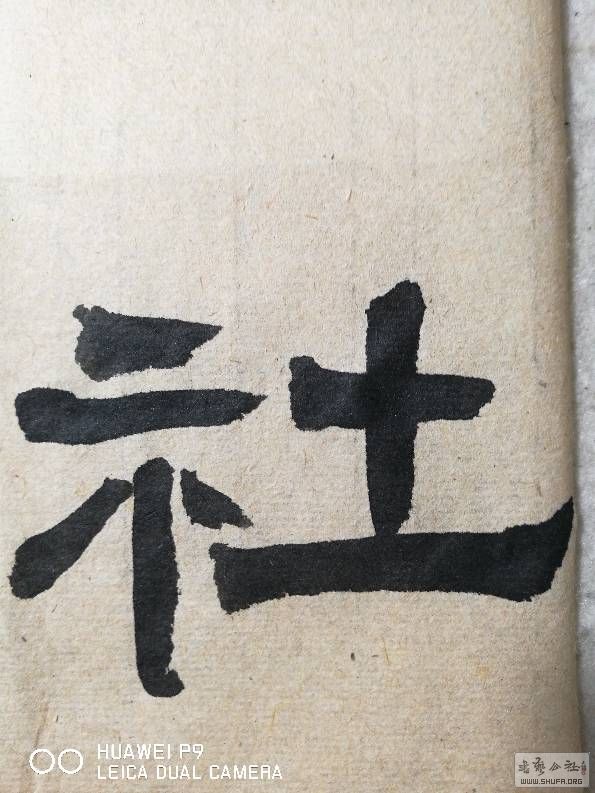 社
HUAWEI P9
LEICA DUAL CAMERA
书艺公社
WWW.SHUFA.ORG